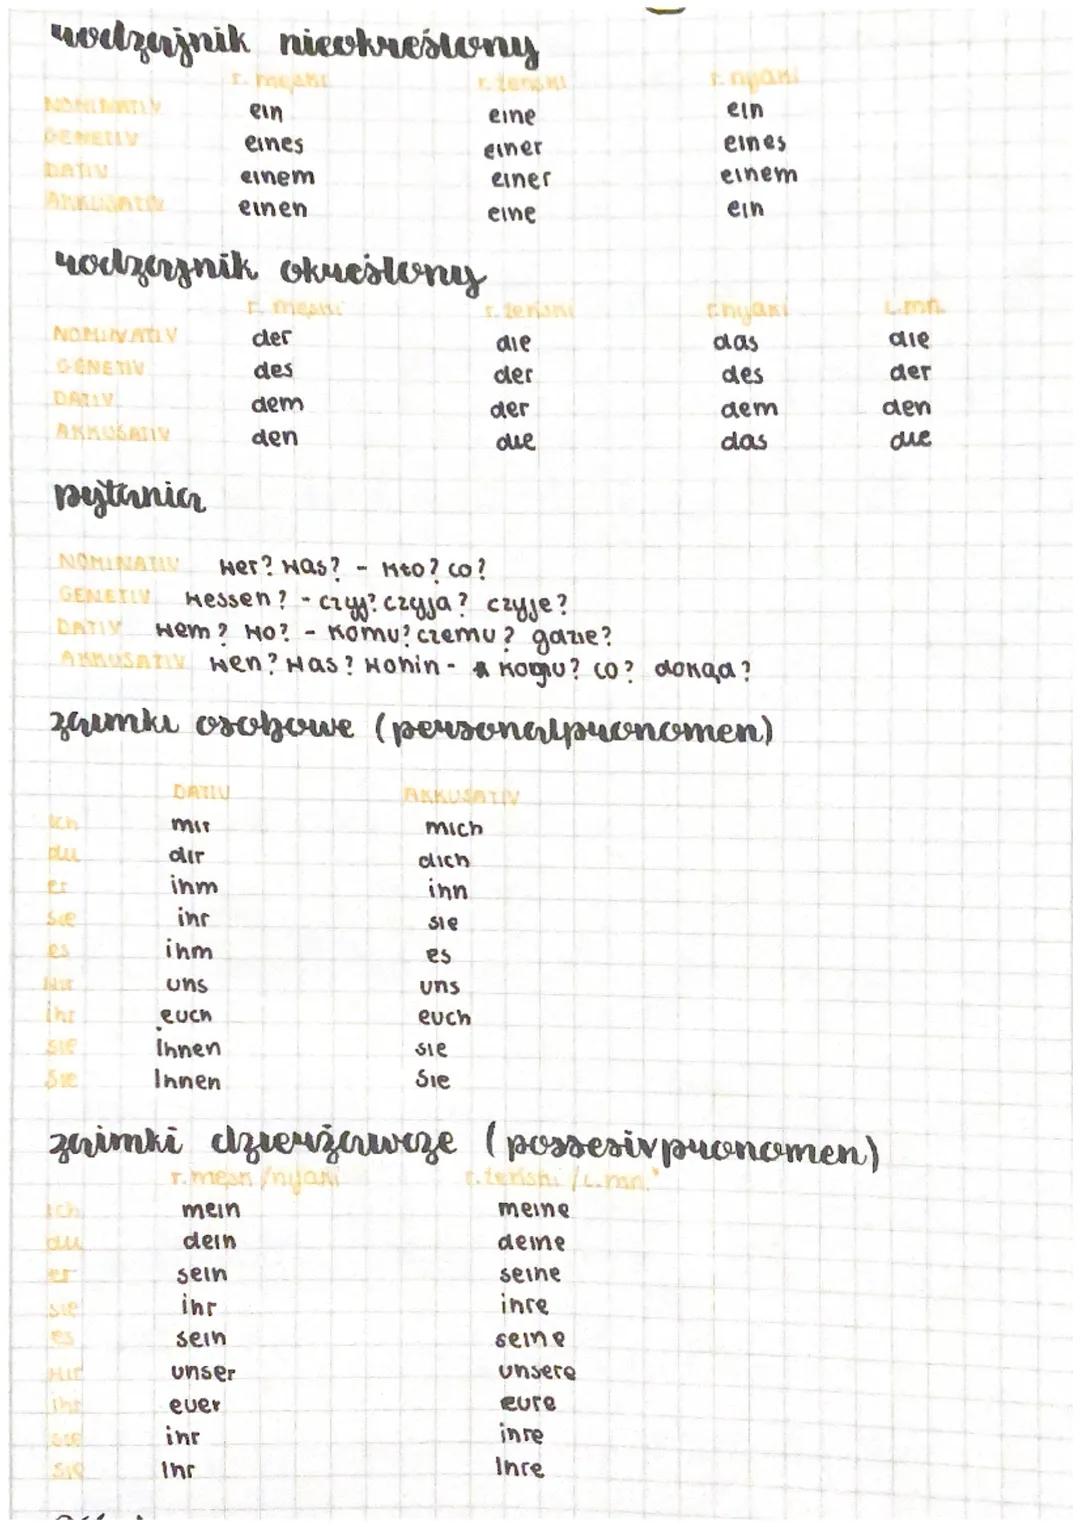 rodzajnik nieokreślony
r. męski r. żeński r. nijaki
NOMINATIV ein eine ein
GENETIV eines einer eines
DATIV einem einer einem
AKKUSATIV einen eine ein
rodzajnik określony
r. męski r. żeński r. nijaki l.mn.
NOMINATIV der die das die
GENETIV des der des der
DATIV dem der dem den
AKKUSATIV den die das die
pytania
NOMINATIV wer? was? - kto? co?
GENETIV wessen? - czyj? czyja? czyje?
DATIV wem? wo? - komu? czemu? gdzie?
AKKUSATIV wen? was? wohin - kogo? co? dokąd?
zaimki osobowe (personalpronomen)
DATIV AKKUSATIV
ich mir mich
du dir dich
er ihm ihn
sie ihr sie
es ihm es
wir uns uns
ihr euch euch
sie ihnen sie
Sie Ihnen Sie
zaimki dzierżawcze (possesivpronomen)
r. męski/nijaki r. żeński/l.mn.
ich mein meine
du dein deine
er sein seine
sie ihr ihre
es sein seine
wir unser unsere
ihr euer eure
sie ihr ihre
Sie Ihr Ihre